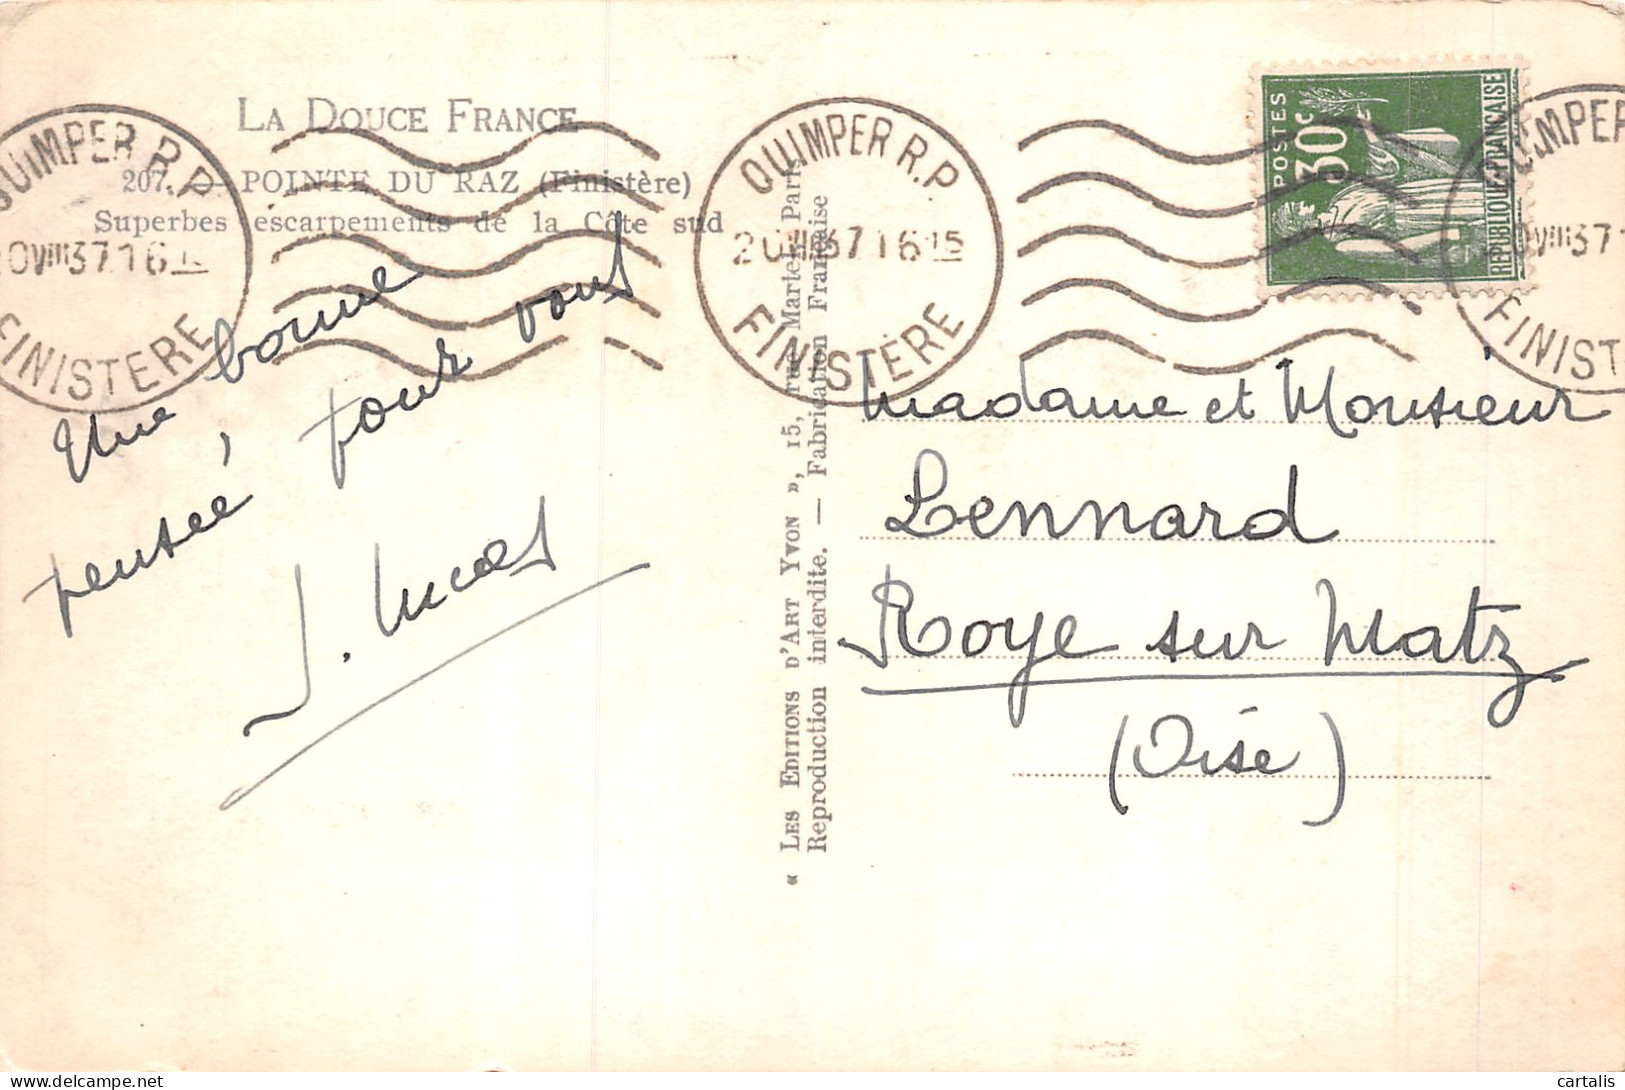 LA DOUCE FRANCE
207. — POINTE DU RAZ (Finistère)
Superbes escarpements de la Côte sud
QUIMPER R.P
20 VIII 37 16 15
FINISTÈRE
QUIMPER R.P
20 VIII 37 16 15
FINISTÈRE
QUIMPER
VIII 37
FINIST
POSTES
30c
REPUBLIQUE FRANÇAISE
Une bonne
pensée, pour vous
J. Lucas
« LES EDITIONS D'ART YVON », 15, rue Martel, Paris
Reproduction interdite. — Fabrication Française
Madame et Monsieur
Lennard
Roye sur Matz
(Oise)
cartalis